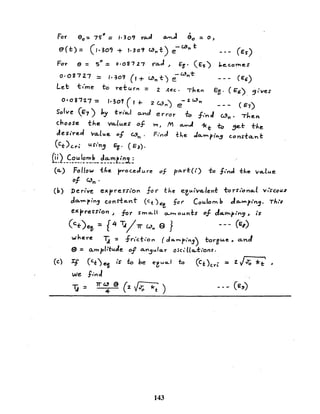 For θ₀ = 75° = 1.309 rad and θ̇₀ = 0,
θ(t) = (1.309 + 1.309 ωₙ t) e^(-ωₙ t) --- (E₅)
For θ = 5° = 0.08727 rad, Eq. (E₅) becomes
0.08727 = 1.309 (1 + ωₙ t) e^(-ωₙ t) --- (E₆)
Let time to return = 2 sec. Then Eq. (E₆) gives
0.08727 = 1.309 (1 + 2 ωₙ) e^(-2 ωₙ) --- (E₇)
Solve (E₇) by trial and error to find ωₙ. Then
choose the values of m, M and kₜ to get the
desired value of ωₙ. Find the damping constant
(cₜ)cri using Eq. (E₃).
(ii) Coulomb damping:
(a) Follow the procedure of part (i) to find the value
of ωₙ.
(b) Derive expression for the equivalent torsional viscous
damping constant (cₜ)eq for Coulomb damping. This
expression, for small amounts of damping, is
(cₜ)eq = {4 T_d / π ωₙ Θ} --- (E₈)
where T_d = friction (damping) torque, and
Θ = amplitude of angular oscillations.
(c) If (cₜ)eq is to be equal to (cₜ)cri = 2 √(J₀ kₜ),
we find
T_d = π ω Θ / 4 (2 √(J₀ kₜ)) --- (E₉)
143